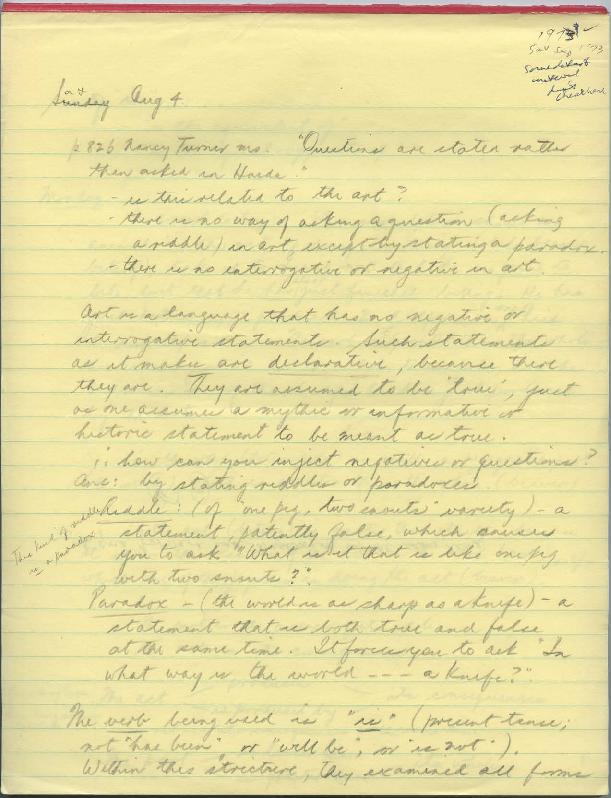 1973
Sat Sep 1 73
Sunday Aug 4
at
p 826 Nancy Turner ms. "Questions are stated rather
than asked in Haida."
- is this related to the art?
- there is no way of asking a question (asking
a riddle) in art, except by stating a paradox.
- there is no interrogative or negative in art.
Art is a language that has no negative or
interrogative statements. Such statements
as it makes are declarative, because there
they are. They are assumed to be "true", just
as one assumes a mythic or informative or
historic statement to be meant as true.
∴ how can you inject negatives or questions?
Ans: by stating riddles or paradoxes.
Riddle: (of "one pig, two snouts" variety) - a
statement, patently false, which causes
you to ask "What is it that is like one pig
with two snouts?".
This kind of riddle
is a paradox
Paradox - (the world is as sharp as a knife) - a
statement that is both true and false
at the same time. It forces you to ask "In
what way is the world --- a knife?".
The verb being used is "is" (present tense;
not "has been" or "will be", or "is not").
Within this structure, they examined all forms